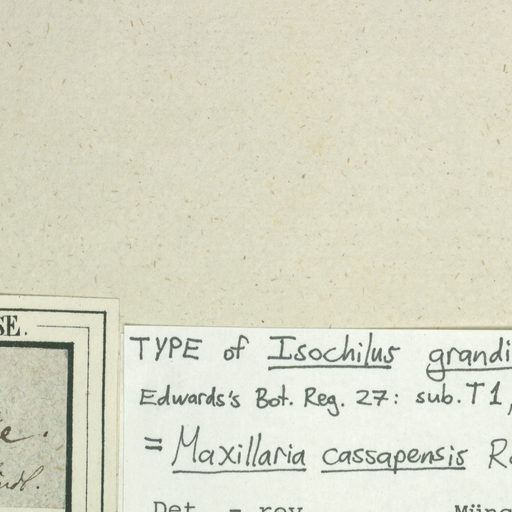 SE.
TYPE of Isochilus grandi
Edwards's Bot. Reg. 27: sub. T1,
= Maxillaria cassapensis R
Det. - rev.